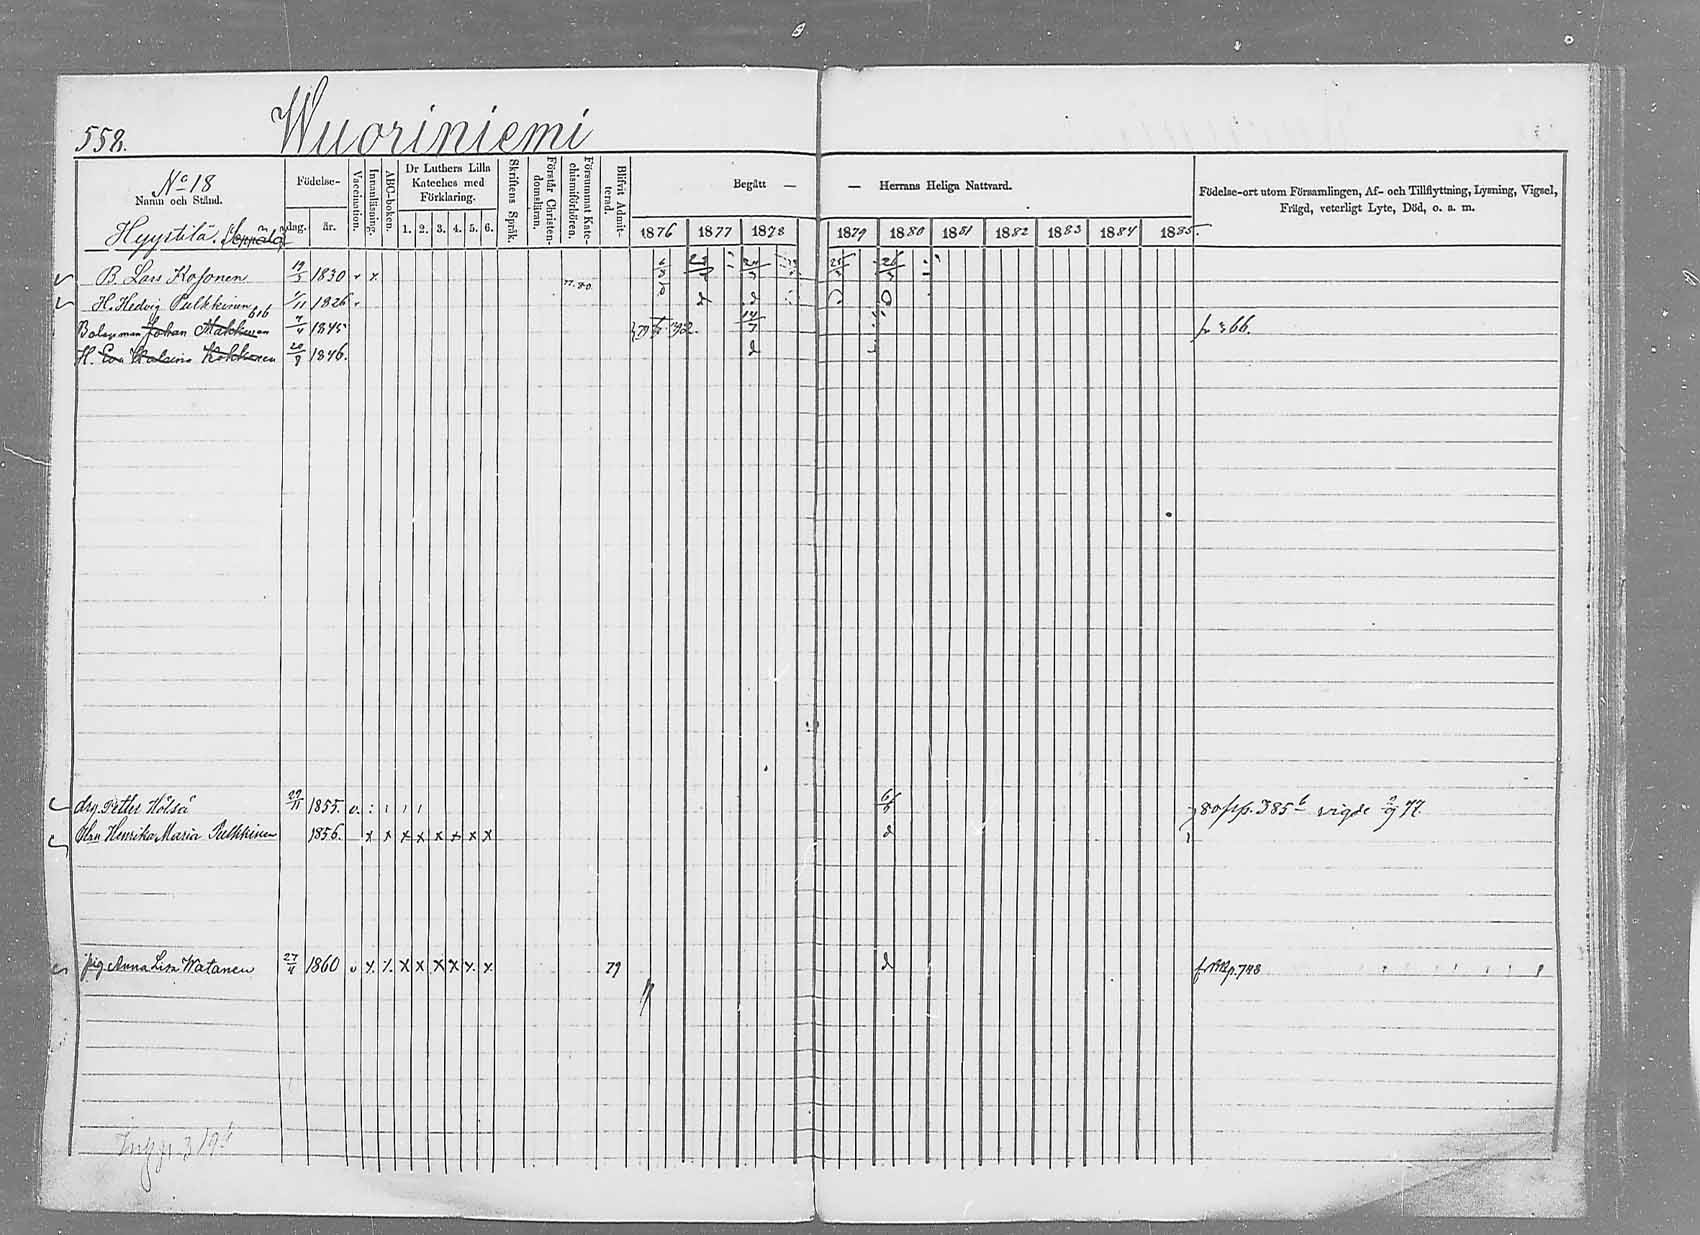 558.
Wuoriniemi
No 18
Namn och Stånd.
Hyystilä, Seppälä
Födelse-
dag.
år.
Vaccination.
Innanläsning.
ABC-boken.
Dr Luthers Lilla Kateches med Förklaring.
1. 2. 3. 4. 5. 6.
Skriftens Språk.
Förstår Christendomsläran.
Försummat Katechismiförhören.
Blifvit Admitterad.
Begått — — Herrans Heliga Nattvard.
1876 1877 1878 1879 1880 1881 1882 1883 1884 1885
Födelse-ort utom Församlingen, Af- och Tillflyttning, Lysning, Vigsel,
Frägd, veterligt Lyte, Död, o. a. m.
B. Lars Kosonen 19/5 1830
H. Hedvig Pulkkinen 1826
616
Bolagsman Johan Makkonen 7/4 1845
H. Eva Kokkonen 20/8 1846.
14/7
drg. Petter Hölsä 29/11 1855. 80 fr p. 385 vigde 9/9 77.
Hru Henrika Maria Pulkkinen 1856. x x x x x x x x
pig Anna Lisa Watanen 27/4 1860 79 p. 748